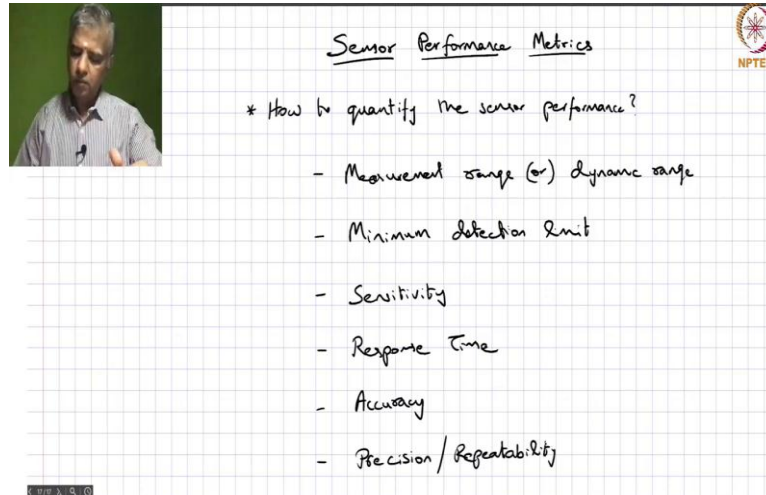 Sensor Performance Metrics
NPTE
* How to quantify the sensor performance?
- Measurement range (or) dynamic range
- Minimum detection limit
- Sensitivity
- Response Time
- Accuracy
- Precision / Repeatability